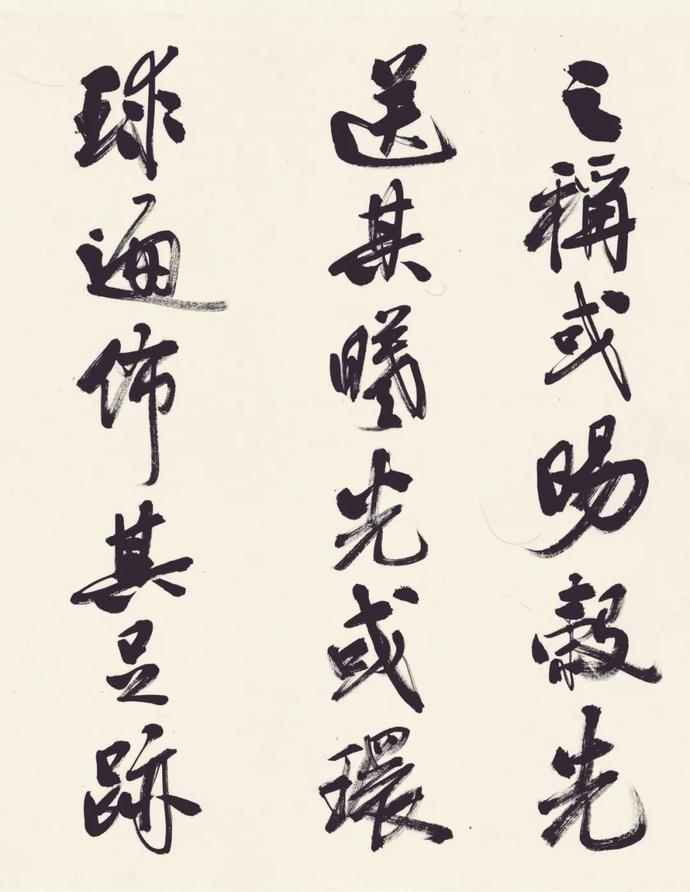 之稱或暘穀先
送其曦光或環
球遍佈其足跡